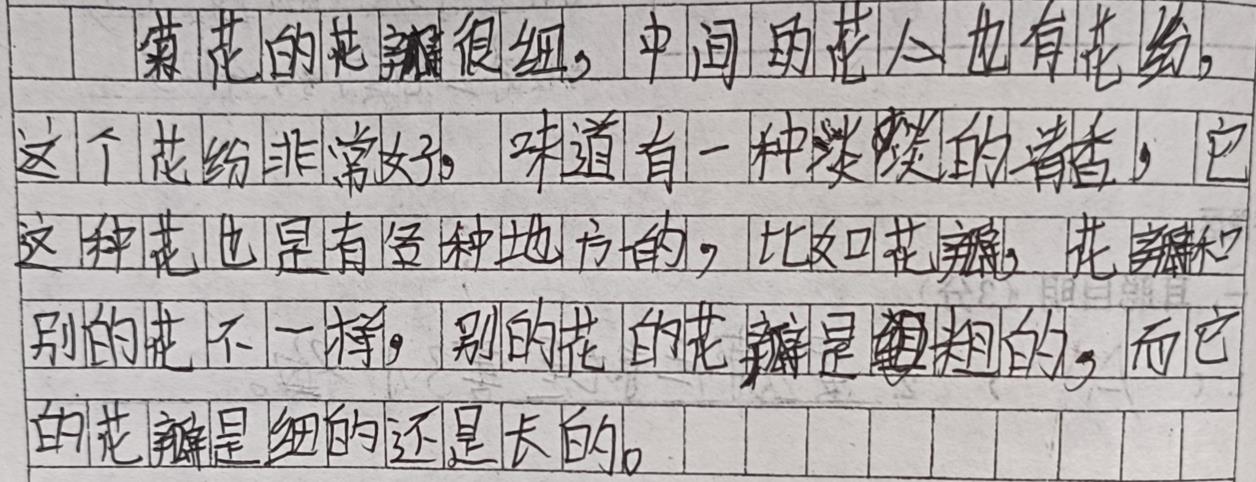 菊花的花瓣很细，中间的花人也有花纷，
这个花纷非常好。味道有一种淡淡的清香，它
这种花也是有各种地方的，比如花瓣，花瓣和
别的花不一样，别的花的花瓣是粗的，而它
的花瓣是细的还是长的。